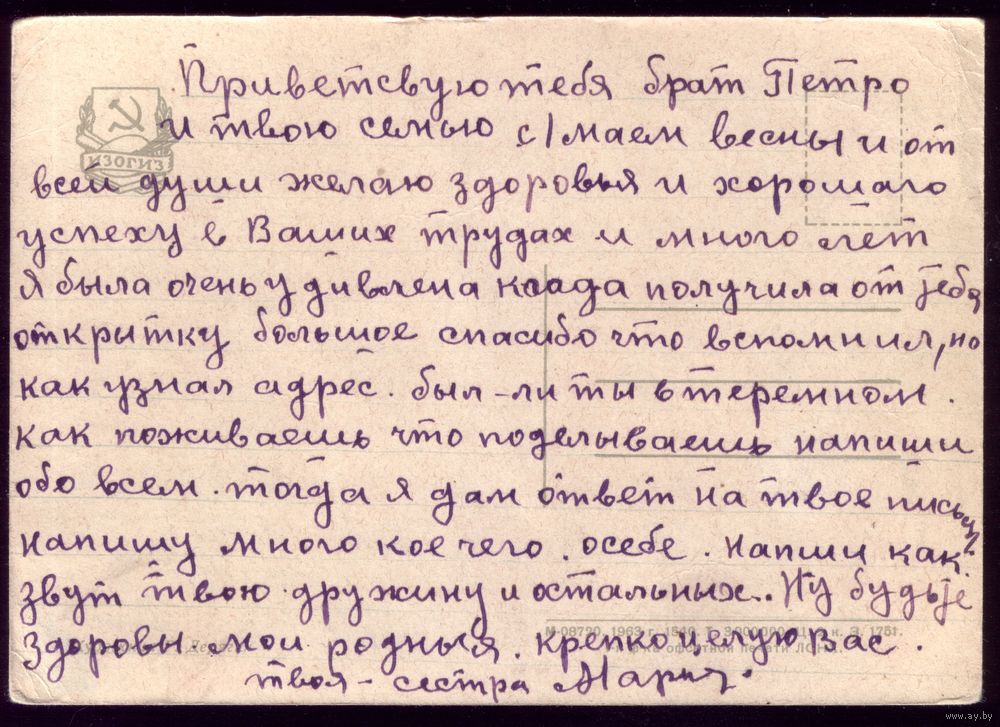 Приветсвую тебя брат Петро
и твою семью с 1 маем весны и от
всей души желаю здоровья и хорошаго
успеху в Ваших трудах и много лет
я была очень удивлена когда получила от тебя
открытку большое спасибо что вспомнил, но
как узнал адрес. был-ли ты в теремном.
как поживаешь что поделываешь напиши
обо всем. тогда я дам ответ на твое письмо
напишу много кое чего. осебе. напиши как
звут твою дружину и остальных.. Ну будьте
здоровы. мои родныя. крепко целую вас.
твоя - сестра Мария.
ИЗОГИЗ
М-08790. 1963 г.
www.ay.by